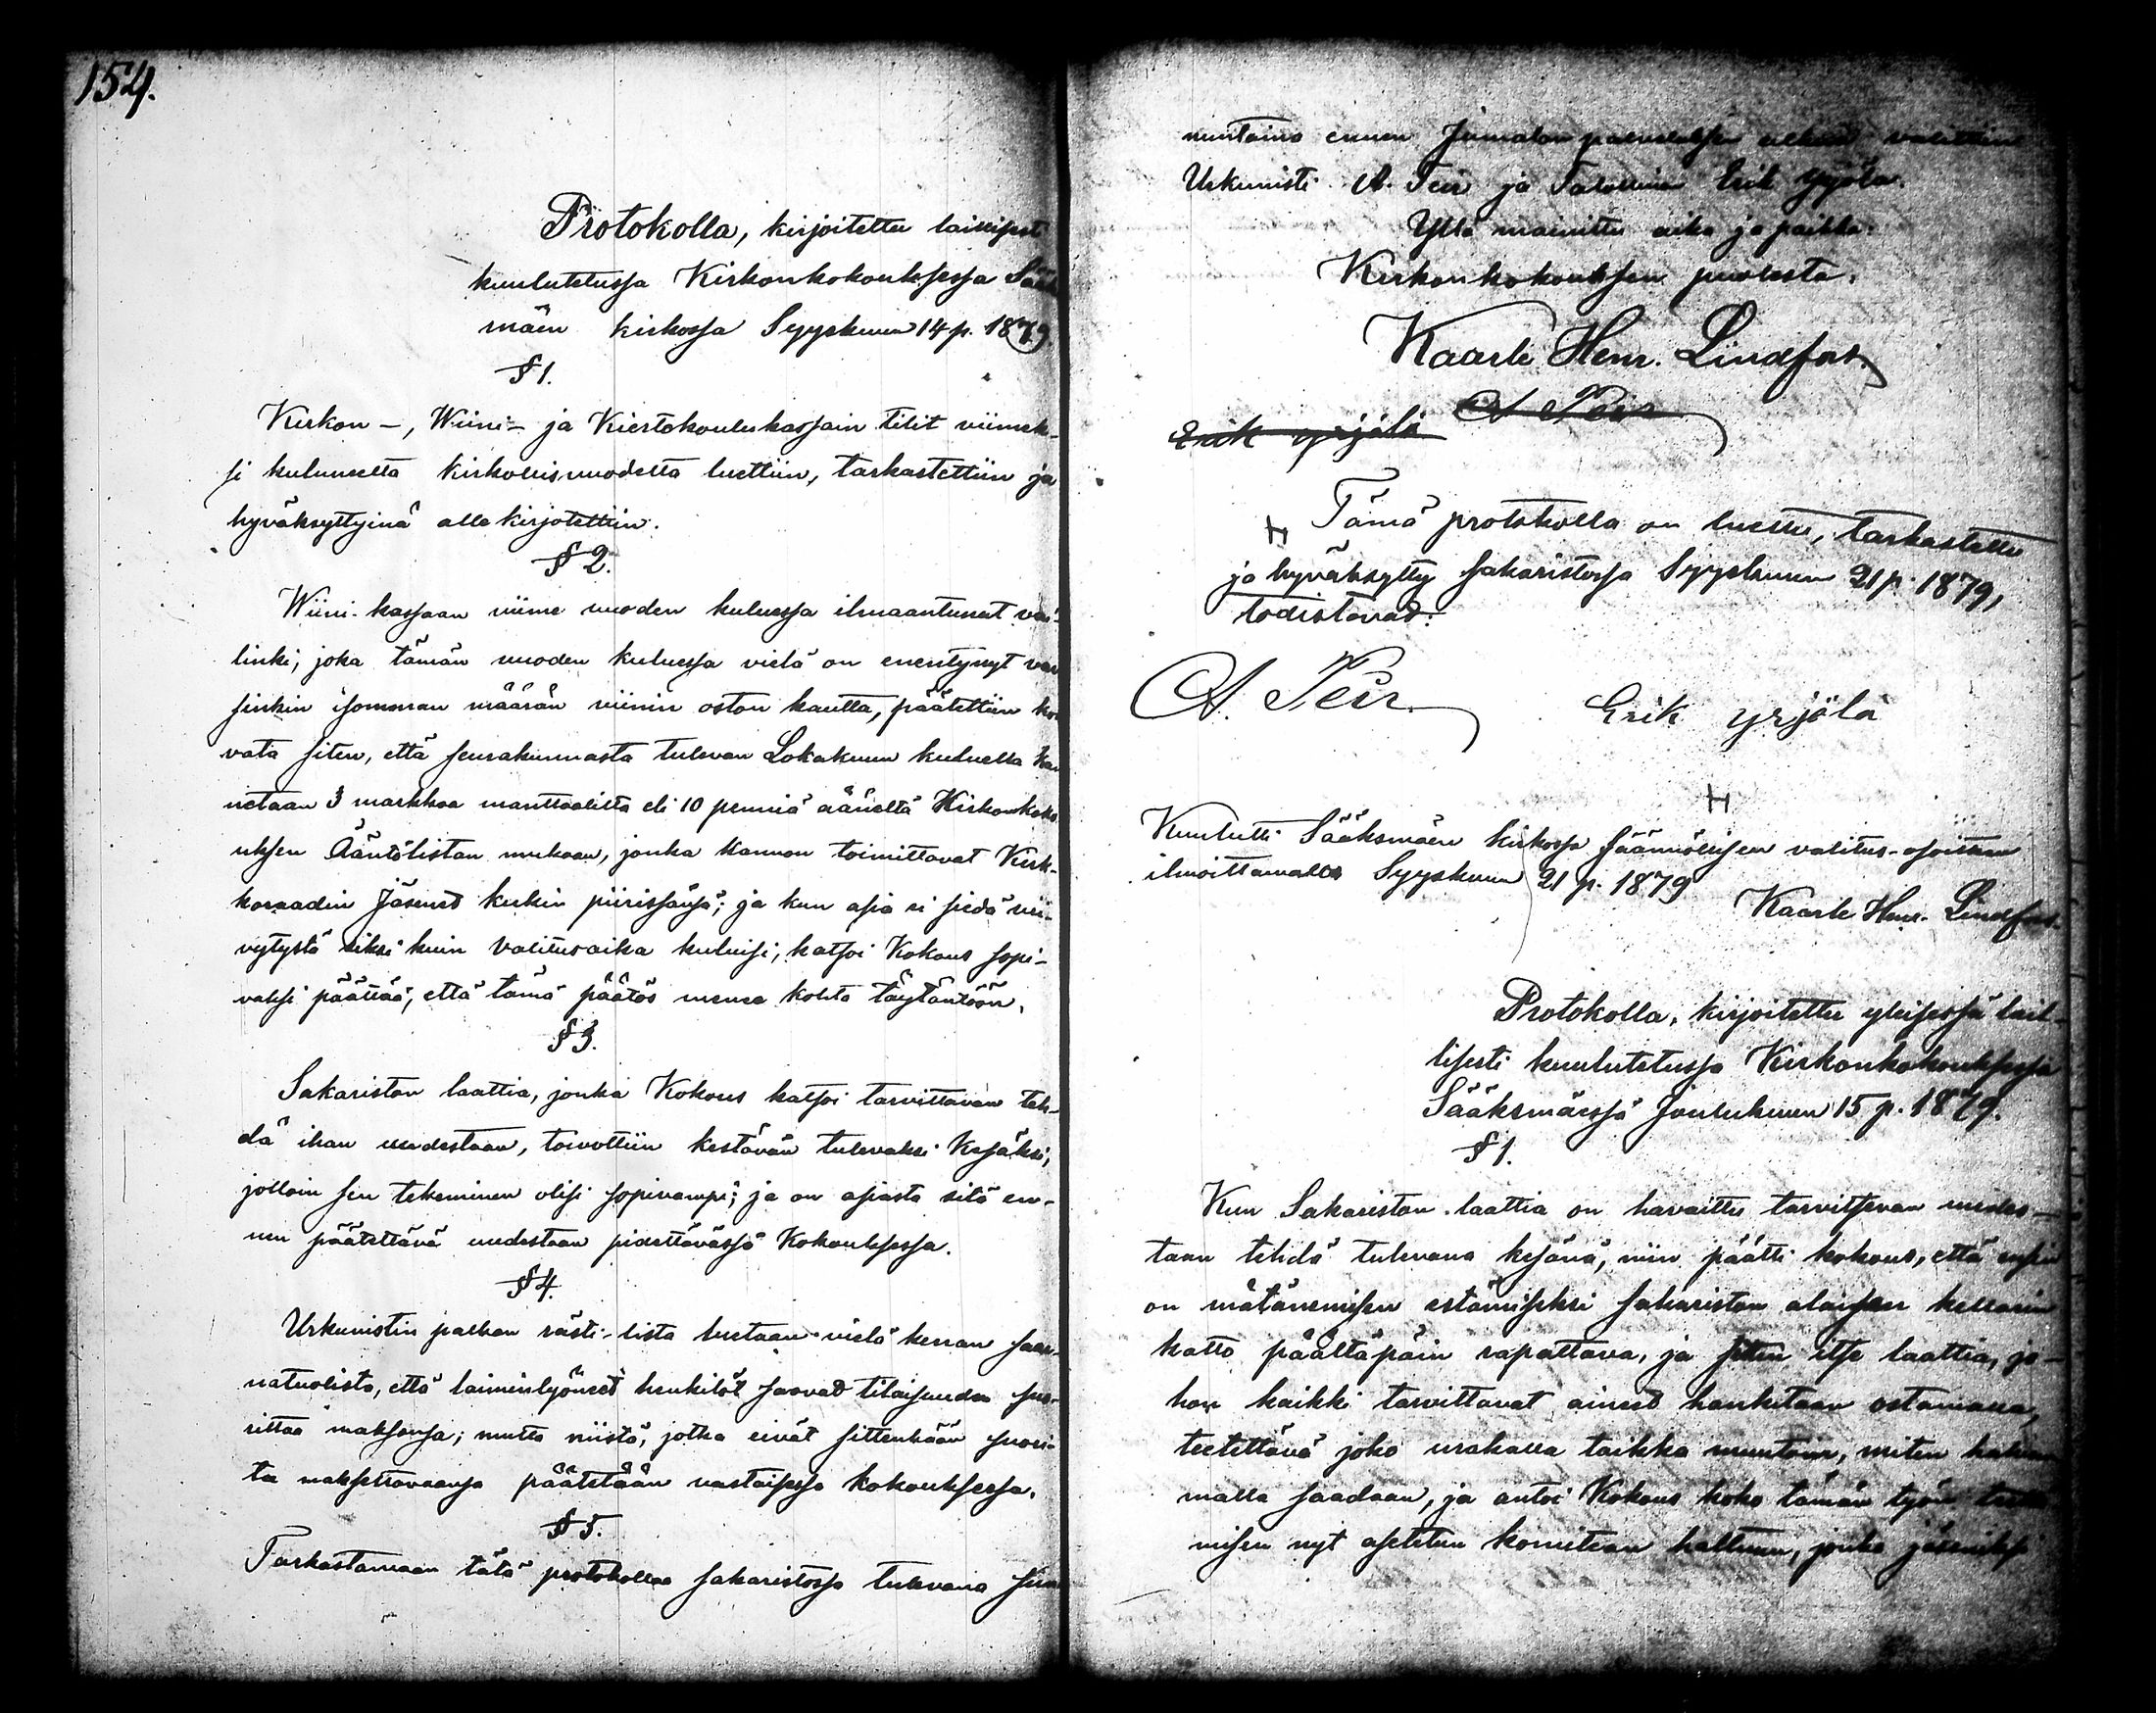 154.
Protokolla, kirjoitettu laillisest
kuulutetussa Kirkonkokouksessa Sääks
mäen kirkossa Syyskuun 14 p. 1879
§ 1.
Kirkon-, Wiini- ja Kiertokoulukassain tilit viimek-
si kuluneelta kirkollisvuodelta luettiin, tarkastettiin ja
hyväksyttyinä allekirjotettiin.
§ 2.
Wiini-kassaan viime vuoden kuluessa ilmaantunut vai-
linki, joka tämän vuoden kuluessa vielä on enentynyt var
sinkin isomman määrän viinin oston kautta, päätettiin kor
vata siten, että seurakunnasta tulevan Lokakuun kuluella kan
netaan 3 markkaa manttaalilta eli 10 penniä ääneltä Kirkonkoko
uksen Ääntölistan mukaan, jonka kannon toimittavat Kirk-
koraadin Jäsenet kukin piirissänsä; ja kun asia ei siedä vii-
vytystä siksi kuin Valitusaika kuluisi, katsoi Kokous sopi-
vaksi päättää, että tämä päätös menee kohta täytäntöön.
§ 3.
Sakariston laattia, jonka Kokous katsoi tarvittavan teh-
dä ihan uudestaan, toivottiin kestävän tulevaksi Kesäksi,
jolloin sen tekeminen olisi sopivampi; ja on asiasta sitä en-
nen päätettävä uudestaan pidettävässä Kokouksessa.
§ 4.
Urkunistin palkan rästi-lista luetaan vielä kerran saar-
natuolista, että laiminlyöneet henkilöt saavat tilaisuuden suo-
rittaa maksonsa; mutta niistä, jotka eivät sittenkään suori-
ta maksettavaansa päätetään vastaisessa kokouksessa.
§ 5.
Tarkastamaan tätä protokollaa sakaristossa tulevana sun
nuntaina ennen Jumalan palveluksen alkua valittiin
Urkunisti A. Teir ja Talollinen Erik Yrjölä.
Yllä mainittu aika ja paikka.
Kirkonkokouksen puolesta:
Kaarle Henr. Lindfors.
A Teir
Erik yrjölä
Tämä protokolla on luettu, tarkastettu
ja hyväksytty sakaristossa Syyskuun 21 p. 1879,
todistavat:
A. Teir
Erik yrjölä
Kuulutti Sääksmäen kirkossa säännöllisen valitus-osoituksen
ilmoittamalla Syyskuun 21 p. 1879
Kaarle Henr. Lindfors.
Protokolla, kirjoitettu yleisessä lail-
lisesti kuulutetussa Kirkonkokouksessa
Sääksmäessä Joulukuun 15 p. 1879.
§ 1.
Kun Sakariston laattia on havaittu tarvitsevan uudes-
taan tehdä tulevana kesänä, niin päätti kokous, että ensin
on mätänemisen estämiseksi sakariston alaisen kellarin
katto päältäpäin rapattava, ja sitten itse laattia, jo-
hon kaikki tarvittavat aineet hankitaan ostamalla,
teetettävä joko urakalla taikka muutoin, miten halvim
malla saadaan, ja antoi Kokous koko tämän työn teettä
misen nyt asetetun komitean haltuun, jonka jäseniksi